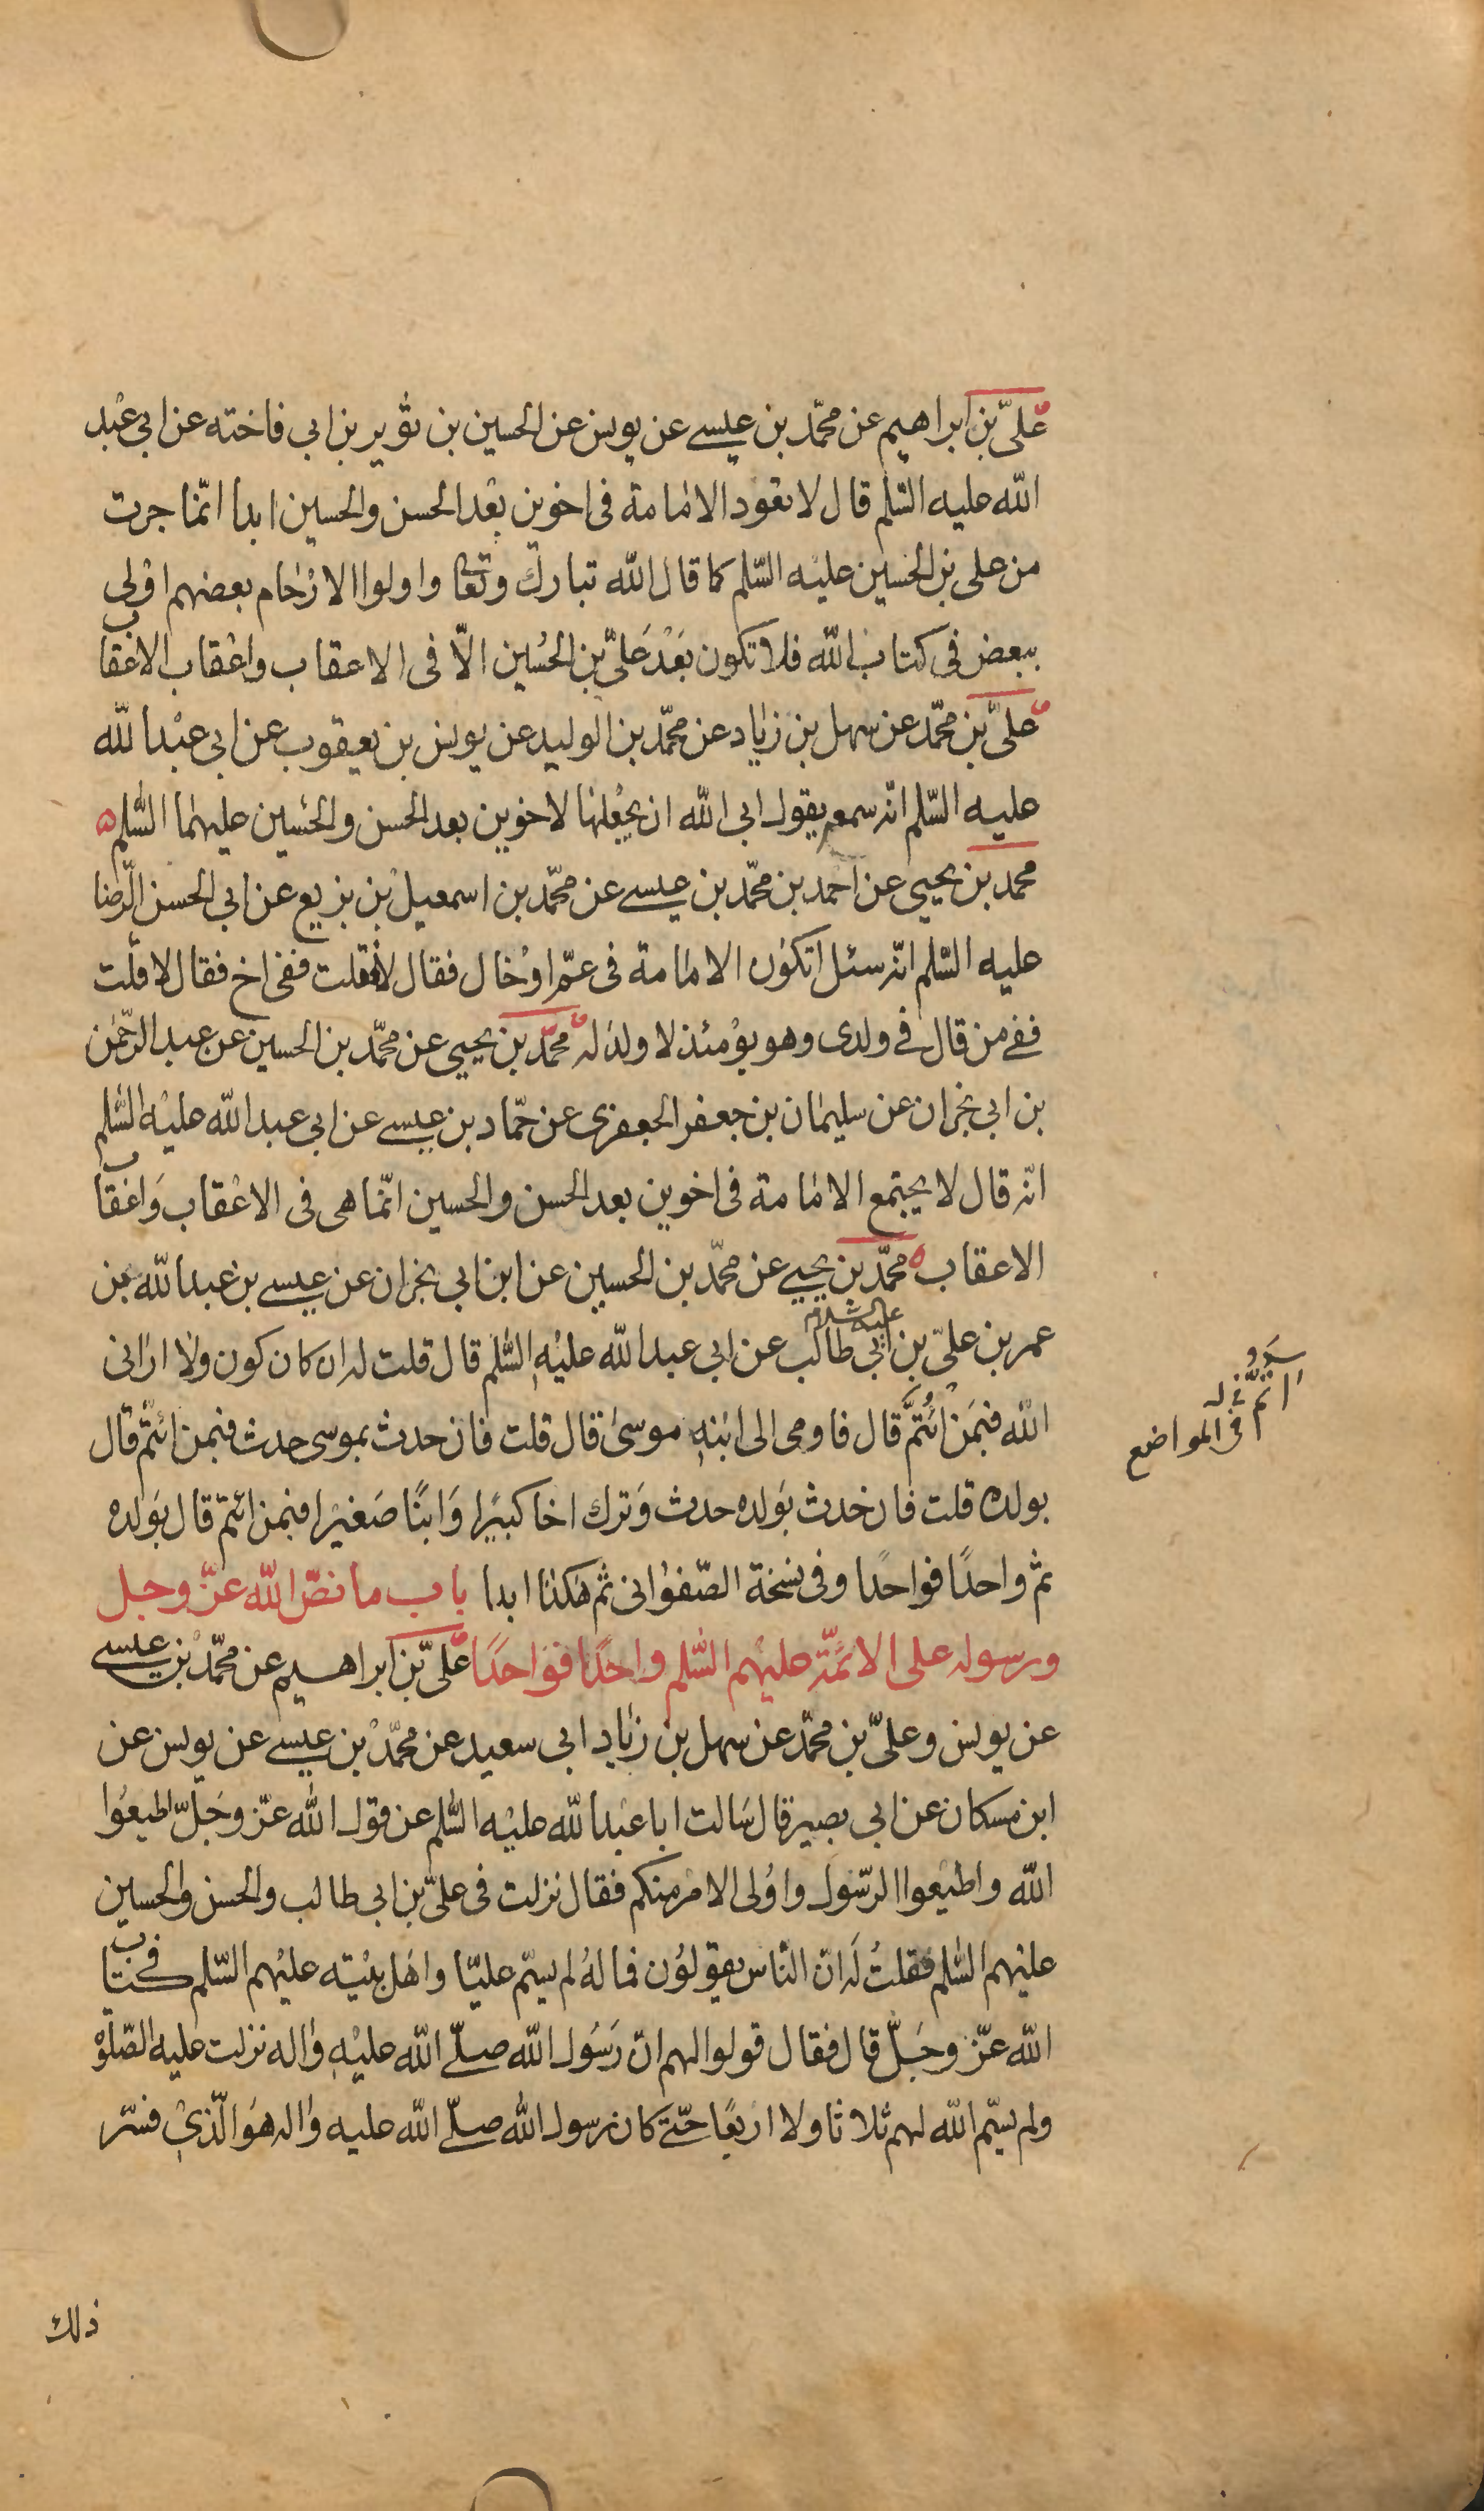 علىّ بن ابراهيم عن محمّد بن عيسى عن يونس عن الحسين بن ثوير بن ابى فاخته عن ابى عبد
الله عليه السّلم قال لا تعود الامامة فى اخوين بعد الحسن والحسين ابدا انّما جرت
من على بن الحسين عليه السّلم كما قال الله تبارك وتعا واولوا الارحام بعضهم اولى
ببعض فى كتاب الله فلا تكون بعد علىّ بن الحسين الّا فى الاعقاب واعقاب الاعقاب
علىّ بن محمّد عن سهل بن زياد عن محمّد بن الوليد عن يونس بن يعقوب عن ابى عبد الله
عليه السّلم انّه سمعه يقول ابى الله ان يجعلها لاخوين بعد الحسن والحسين عليهما السّلم
محمد بن يحيى عن احمد بن محمّد بن عيسى عن محمّد بن اسمعيل بن بزيع عن ابى الحسن الرّضا
عليه السّلم انّه سئل اتكون الامامة فى عمّ او خال فقال لا فقلت ففى اخ فقال لا قلت
ففى من قال فى ولدى وهو يومئذ لا ولد له محمّد بن يحيى عن محمّد بن الحسين عن عبد الرّحمن
بن ابى نجران عن سليمان بن جعفر الجعفرى عن حمّاد بن عيسى عن ابى عبد الله عليه السّلم
انّه قال لا يجتمع الامامة فى اخوين بعد الحسن والحسين انّما هى فى الاعقاب واعقاب
الاعقاب محمّد بن يحيى عن محمّد بن الحسين عن ابن ابى نجران عن عيسى بن عبد الله بن
عمر بن علىّ بن ابى طالب عليه السلام عن ابى عبد الله عليه السّلم قال قلت له ان كان كون ولا ارانى
الله فبمن ائتمّ قال فاومى الى ابنه موسى قال قلت فان حدث بموسى حدث فبمن ائتمّ قال
بولده قلت فان حدث بولده حدث وترك اخا كبيرا وابنًا صغيرا فبمن ائتمّ قال بولده
ثمّ واحدًا فواحدًا وفى نسخة الصّفوانى ثمّ هكذا ابدا باب ما نصّ الله عزّ وجل
ورسوله على الائمّة عليهم السّلم واحدًا فواحدًا علىّ بن ابراهيم عن محمّد بن عيسى
عن يونس وعلىّ بن محمّد عن سهل بن زياد ابى سعيد عن محمّد بن عيسى عن يونس عن
ابن مسكان عن ابى بصير قال سالت ابا عبد الله عليه السّلم عن قول الله عزّ وجلّ اطيعوا
الله واطيعوا الرّسول واولى الامر منكم فقال نزلت فى علىّ بن ابى طالب والحسن والحسين
عليهم السّلم فقلت له انّ النّاس يقولون فما له لم يسمّ عليّا واهل بيته عليهم السّلم فى كتاب
الله عزّ وجلّ قال فقال قولوا لهم انّ رسول الله صلّى الله عليه واله نزلت عليه الصّلوة
ولم يسمّ الله لهم ثلاثا ولا اربعًا حتّى كان رسول الله صلّى الله عليه واله هو الّذى فسّر
ذلك
ائتمّ
فى المواضع